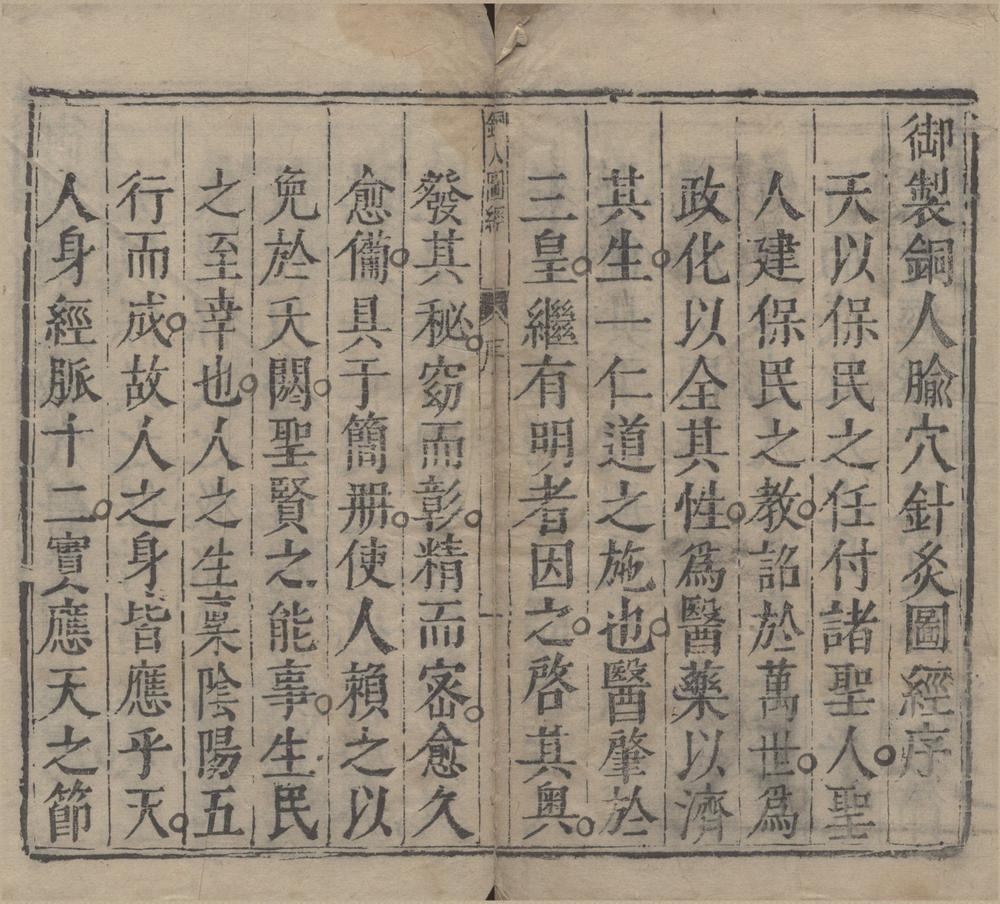 御製銅人腧穴針灸圖經序
天以保民之任付諸聖人。聖
人建保民之教。詔於萬世。爲
政化以全其性。爲醫藥以濟
其生。一仁道之施也。醫肇於
三皇。繼有明者因之。啓其奥。
銅人圖經 序 一
發其秘。窈而彰。精而密。愈久
愈備。具于簡册。使人賴之以
免於夭閼。聖賢之能事。生民
之至幸也。人之生稟陰陽五
行而成。故人之身皆應乎天。
人身經脈十二。實應天之節